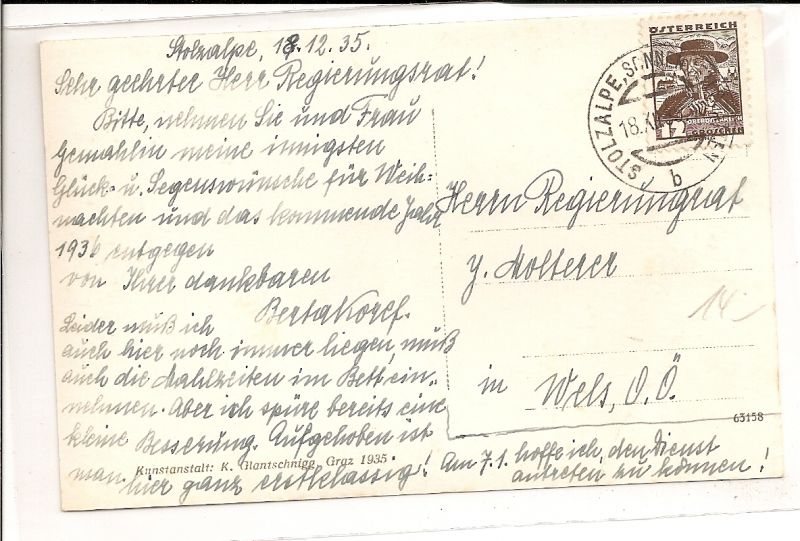 Stolzalpe, 18.12.35.
Sehr geehrter Herr Regierungsrat!
Bitte, nehmen Sie und Frau
Gemahlin meine innigsten
Glück- u. Segenswünsche für Weih-
nachten und das kommende Jahr
1936 entgegen
von Ihrer dankbaren
Berta Koref.
Leider muß ich
auch hier noch immer liegen, muß
auch die Mahlzeiten im Bett ein-
nehmen. Aber ich spüre bereits eine
kleine Besserung. Aufgehoben ist
man hier ganz erstklassig! Am 7.1. hoffe ich, den Dienst
antreten zu können!
Kunstanstalt: K. Glantschnigg, Graz 1935
ÖSTERREICH
12 GROSCHEN
STOLZALPE
18.XII
b
Herrn Regierungsrat
Molterer
in Wels, O.Ö.
14.-
63158